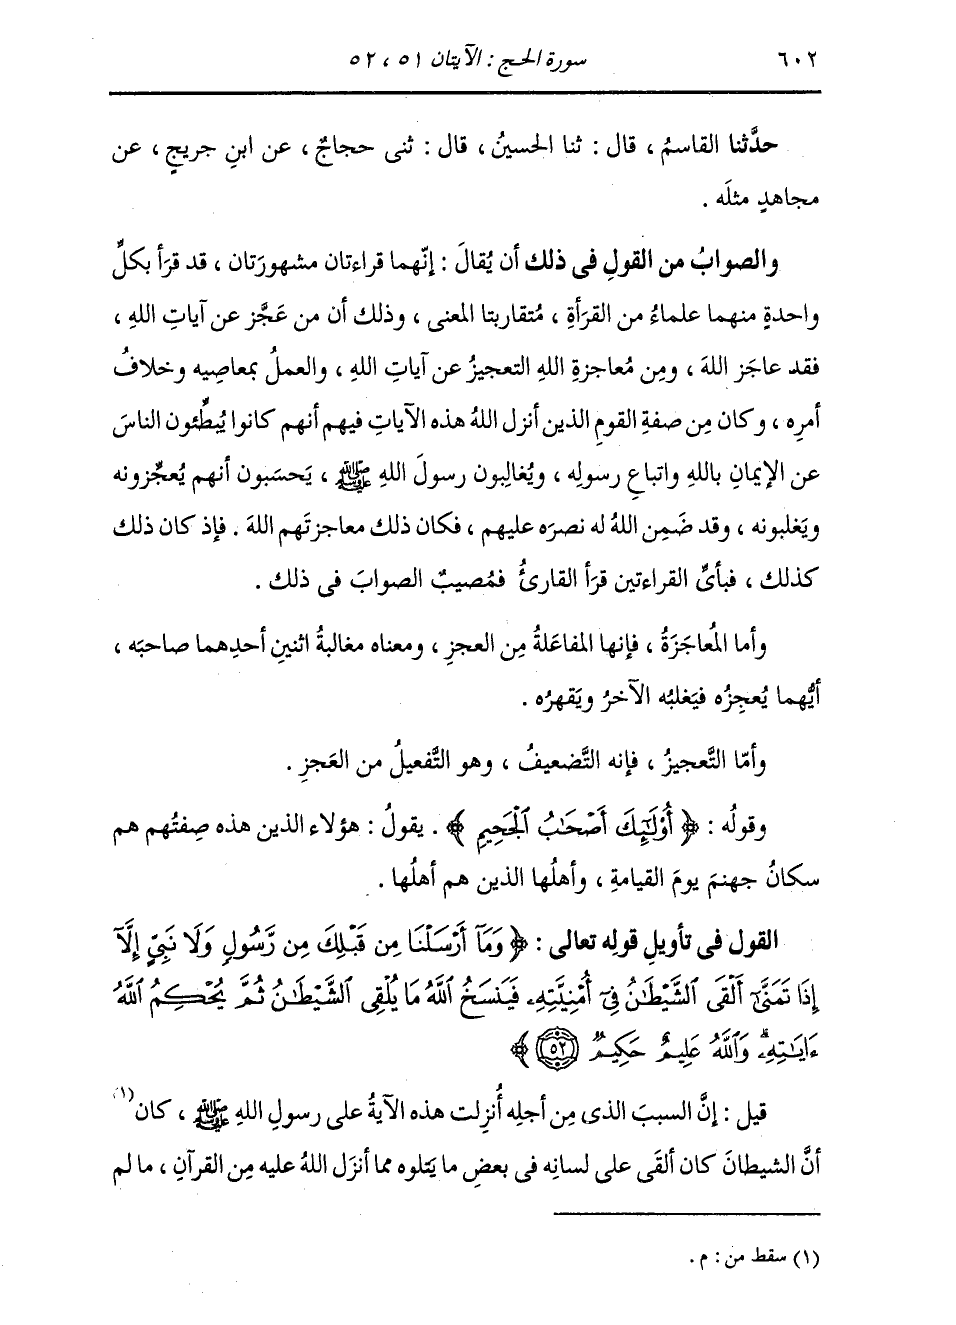 ٦٠٢ سورة الحج : الآيتان ٥١ ، ٥٢
حدَّثنا القاسمُ ، قال : ثنا الحسينُ ، قال : ثنى حجاجٌ ، عن ابنِ جريجٍ ، عن
مجاهدٍ مثلَه .
والصوابُ من القولِ فى ذلك أن يُقالَ : إنّهما قراءتان مشهورَتان ، قد قرَأ بكلِّ
واحدةٍ منهما علماءُ من القرَأةِ ، مُتقاربتا المعنى ، وذلك أن من عَجَّز عن آياتِ اللهِ ،
فقد عاجَز اللهَ ، ومِن مُعاجزةِ اللهِ التعجيزُ عن آياتِ اللهِ ، والعملُ بمعاصِيه وخلافُ
أمرِه ، وكان مِن صفةِ القومِ الذين أنزل اللهُ هذه الآياتِ فيهم أنهم كانوا يُبطِّئون الناسَ
عن الإيمانِ باللهِ واتباعِ رسولِه ، ويُغالِبون رسولَ اللهِ ﷺ ، يَحسَبون أنهم يُعجِّزونه
ويَغلبونه ، وقد ضَمِن اللهُ له نصرَه عليهم ، فكان ذلك معاجزتَهم اللهَ . فإذ كان ذلك
كذلك ، فبأىِّ القراءتين قرَأ القارئُ فمُصيبٌ الصوابَ فى ذلك .
وأما المُعاجَزَةُ ، فإنها المفاعَلةُ مِن العجزِ ، ومعناه مغالبةُ اثنينِ أحدِهما صاحبَه ،
أيُّهما يُعجِزُه فيَغلبُه الآخرُ ويَقهرُه .
وأمّا التَّعجيزُ ، فإنه التَّضعيفُ ، وهو التَّفعيلُ من العَجزِ .
وقولُه : ﴿ أُوْلَٰٓئِكَ أَصْحَٰبُ ٱلْجَحِيمِ ﴾ . يقولُ : هؤلاء الذين هذه صِفتُهم هم
سكانُ جهنمَ يومَ القيامةِ ، وأهلُها الذين هم أهلُها .
القول فى تأويلِ قولِه تعالى : ﴿ وَمَآ أَرْسَلْنَا مِن قَبْلِكَ مِن رَّسُولٍ وَلَا نَبِىٍّ إِلَّآ
إِذَا تَمَنَّىٰٓ أَلْقَى ٱلشَّيْطَٰنُ فِىٓ أُمْنِيَّتِهِۦ فَيَنسَخُ ٱللَّهُ مَا يُلْقِى ٱلشَّيْطَٰنُ ثُمَّ يُحْكِمُ ٱللَّهُ
ءَايَٰتِهِۦ ۗ وَٱللَّهُ عَلِيمٌ حَكِيمٌ ٥٢ ﴾
قيل : إنَّ السببَ الذى مِن أجلِه أُنزِلت هذه الآيةُ على رسولِ اللهِ ﷺ ، كان (١)
أنَّ الشيطانَ كان ألقَى على لسانِه فى بعضِ ما يَتلوه مما أنزَل اللهُ عليه مِن القرآنِ ، ما لم
(١) سقط من : م .